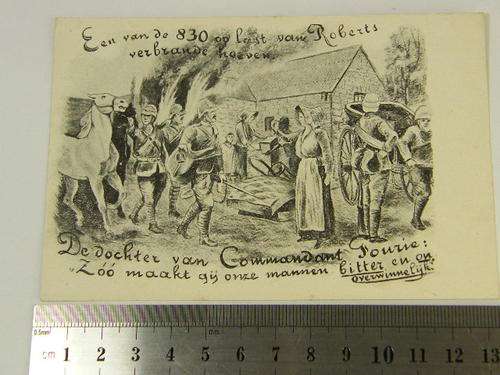 Een van de 830 op last van Roberts
verbrande hoeven.
De dochter van Commandant Fourie:
"Zóó maakt gij onze mannen bitter en on
overwinnelijk."
0.5mm
mm
cm 1 2 3 4 5 6 7 8 9 10 11 12 13